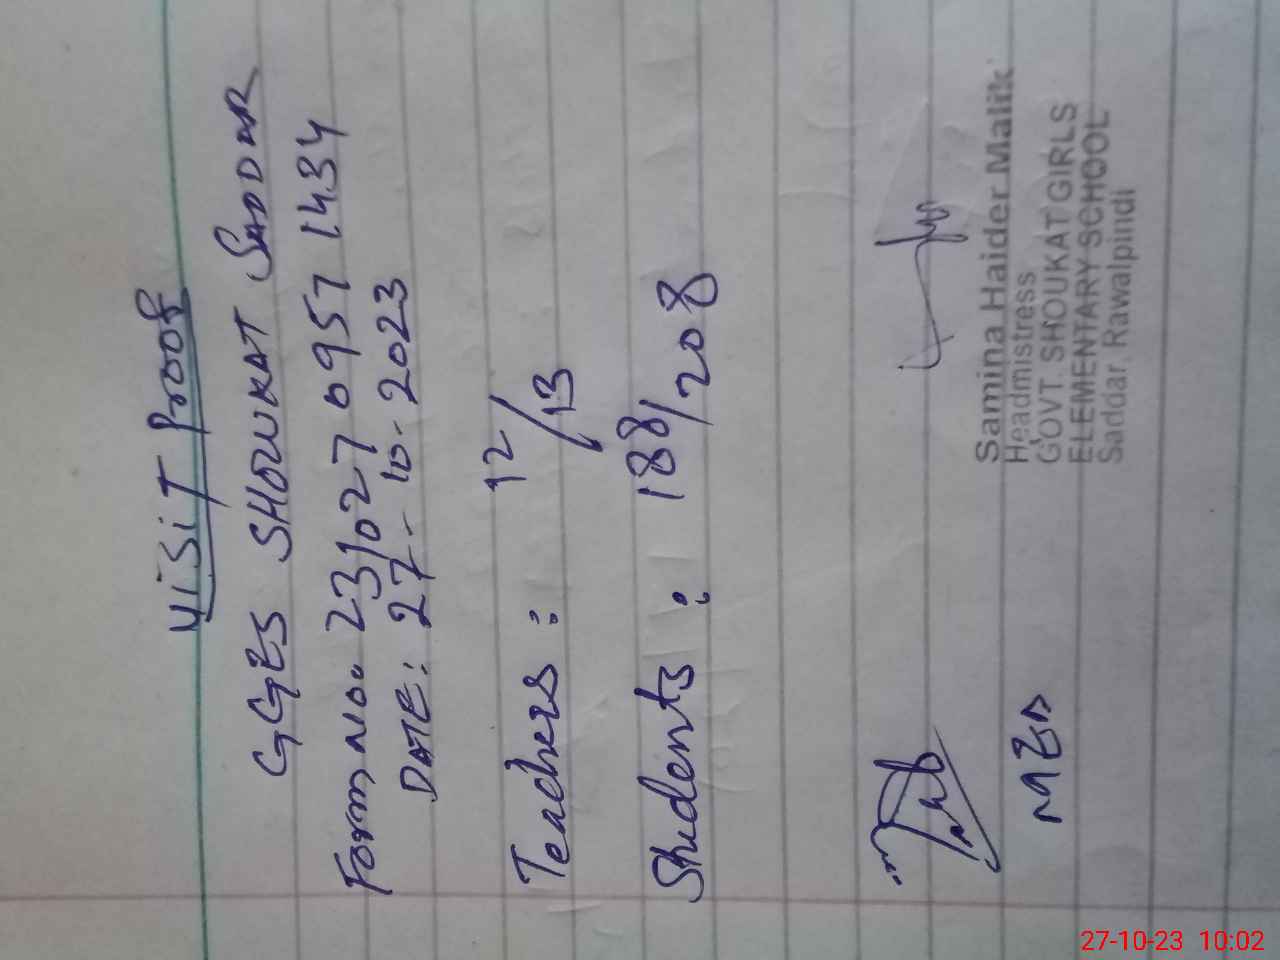 VISIT Proof
GGES SHOUKAT SADDAR
Form No. 23102709571434
DATE: 27-10-2023
Teachers : 12/13
Students : 188/208
MEA
Samina Haider Malik
Headmistress
GOVT. SHOUKAT GIRLS
ELEMENTARY SCHOOL
Saddar, Rawalpindi
27-10-23 10:02